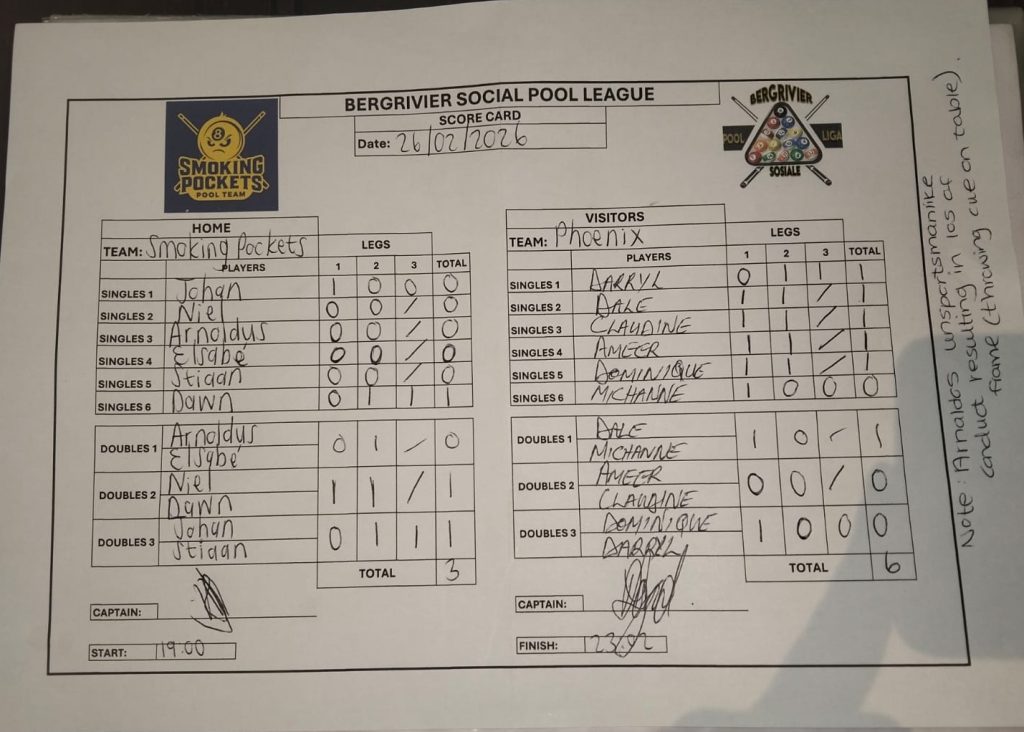 BERGRIVIER SOCIAL POOL LEAGUE
SCORE CARD
Date: 26/02/2026
8
SMOKING
POCKETS
POOL TEAM
BERGRIVIER
POOL LIGA
SOSIALE
HOME
TEAM: Smoking Pockets LEGS
PLAYERS 1 2 3 TOTAL
SINGLES 1 Johan 1 0 0 0
SINGLES 2 Niel 0 0 / 0
SINGLES 3 Arnoldus 0 0 / 0
SINGLES 4 Elsabé 0 0 / 0
SINGLES 5 Stiaan 0 0 / 0
SINGLES 6 Dawn 0 1 1 1
DOUBLES 1 Arnoldus 0 1 / 0
Elsabé
DOUBLES 2 Niel 1 1 / 1
Dawn
DOUBLES 3 Johan 0 1 1 1
Stiaan
TOTAL 3
CAPTAIN:
START: 19:00
VISITORS
TEAM: Phoenix LEGS
PLAYERS 1 2 3 TOTAL
SINGLES 1 DARRYL 0 1 1 1
SINGLES 2 DALE 1 1 / 1
SINGLES 3 CLAUDINE 1 1 / 1
SINGLES 4 AMEER 1 1 / 1
SINGLES 5 DOMINIQUE 1 1 / 1
SINGLES 6 MICHANNE 1 0 0 0
DOUBLES 1 DALE 1 0 / 1
MICHANNE
DOUBLES 2 AMEER 0 0 / 0
CLAUDINE
DOUBLES 3 DOMINIQUE 1 0 0 0
DARRYL
TOTAL 6
CAPTAIN:
FINISH:
Note: Arnaldos unsportsmanlike
conduct resulting in loss of
frame (throwing cue on table).